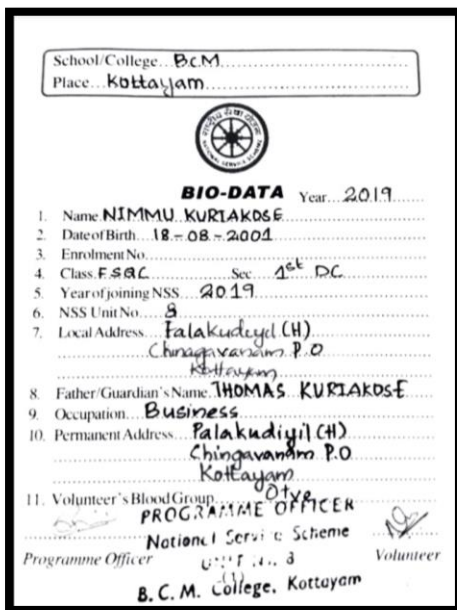 School/College B.C.M
Place Kottayam
राष्ट्रीय सेवा योजना
NATIONAL SERVICE SCHEME
BIO-DATA Year 2019
1. Name NIMMU KURIAKOSE
2. Date of Birth 18-08-2001
3. Enrolment No.
4. Class FSQC Sec 1st DC
5. Year of joining NSS 2019
6. NSS Unit No. 8
7. Local Address Palakudiyil (H)
Chingavanam P.O
Kottayam
8. Father/Guardian's Name THOMAS KURIAKOSE
9. Occupation Business
10. Permanent Address Palakudiyil (H)
Chingavanam P.O
Kottayam
11. Volunteer's Blood Group O+ve
PROGRAMME OFFICER
National Service Scheme
Programme Officer Volunteer
B. C. M. College, Kottayam